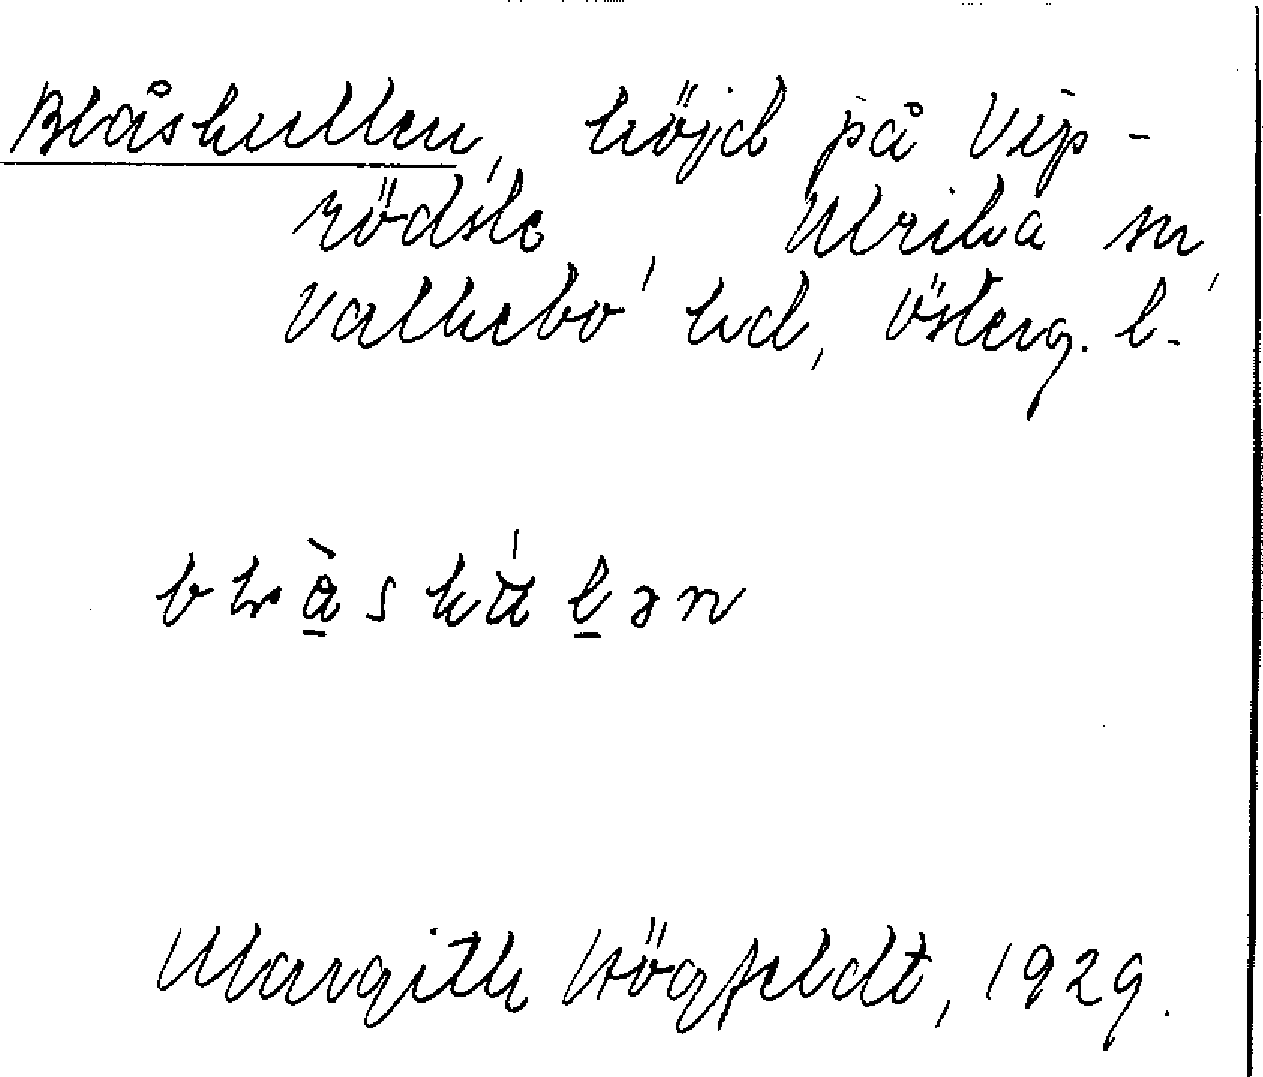 Blåskullen, höjd på Vip-
rödsle Ulrika sn,
Valkebo hd, Österg. l.
bwåskulən
Margith Högfeldt, 1929.